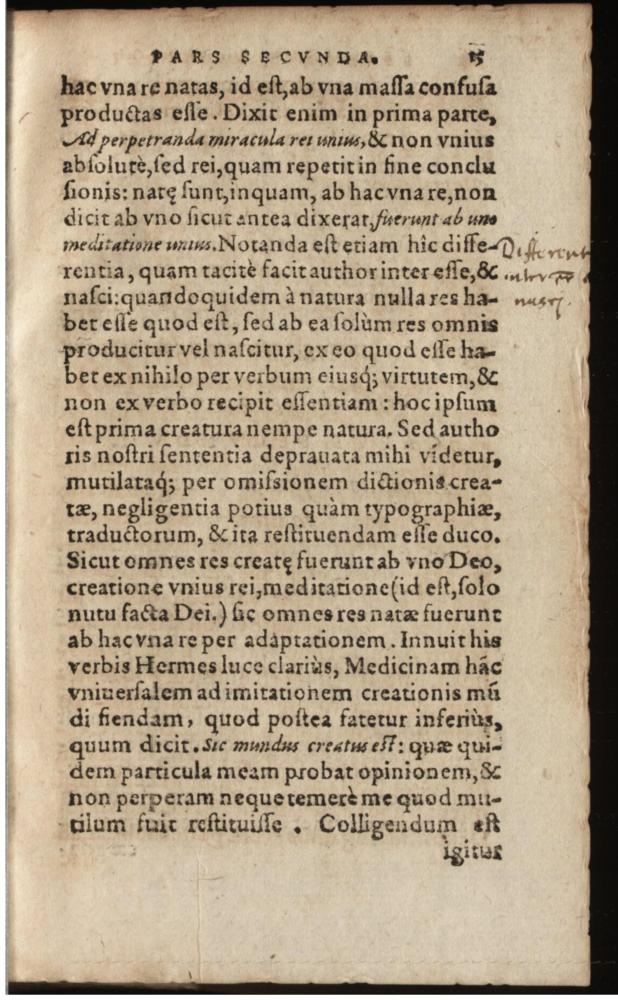 PARS SECVNDA. 15
hac vna re natas, id eſt, ab vna maſſa confuſa
productas eſſe. Dixit enim in prima parte,
Ad perpetranda miracula rei unius, & non vnius
abſolutè, ſed rei, quam repetit in fine conclu
ſionis: natę ſunt, inquam, ab hac vna re, non
dicit ab vno ſicut antea dixerat, fuerunt ab uno
meditatione unius. Notanda eſt etiam hîc diffe-
rentia, quam tacitè facit author inter eſſe, &
naſci: quandoquidem à natura nulla res ha-
bet eſſe quod eſt, ſed ab ea ſolùm res omnis
producitur vel naſcitur, ex eo quod eſſe ha-
bet ex nihilo per verbum eiusq́; virtutem, &
non ex verbo recipit eſſentiam: hoc ipſum
eſt prima creatura nempe natura. Sed autho
ris noſtri ſententia deprauata mihi videtur,
mutilataq́; per omiſsionem dictionis crea-
tæ, negligentia potius quàm typographiæ,
traductorum, & ita reſtituendam eſſe duco.
Sicut omnes res creatę fuerunt ab vno Deo,
creatione vnius rei, meditatione (id eſt, ſolo
nutu facta Dei.) ſic omnes res natæ fuerunt
ab hac vna re per adaptationem. Innuit his
verbis Hermes luce clariùs, Medicinam hãc
vniuerſalem ad imitationem creationis mũ
di fiendam, quod poſtea fatetur inferiùs,
quum dicit. Sic mundus creatus eſt: quæ qui-
dem particula meam probat opinionem, &
non perperam neque temerè me quod mu-
tilum fuit reſtituiſſe. Colligendum eſt
igitur
Different
inter
nasci